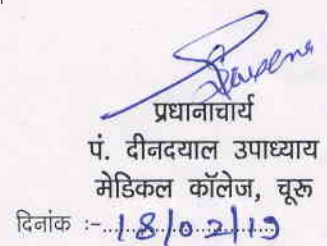 प्रधानाचार्य
पं. दीनदयाल उपाध्याय
मेडिकल कॉलेज, चूरू
दिनांक :-..18/02/19